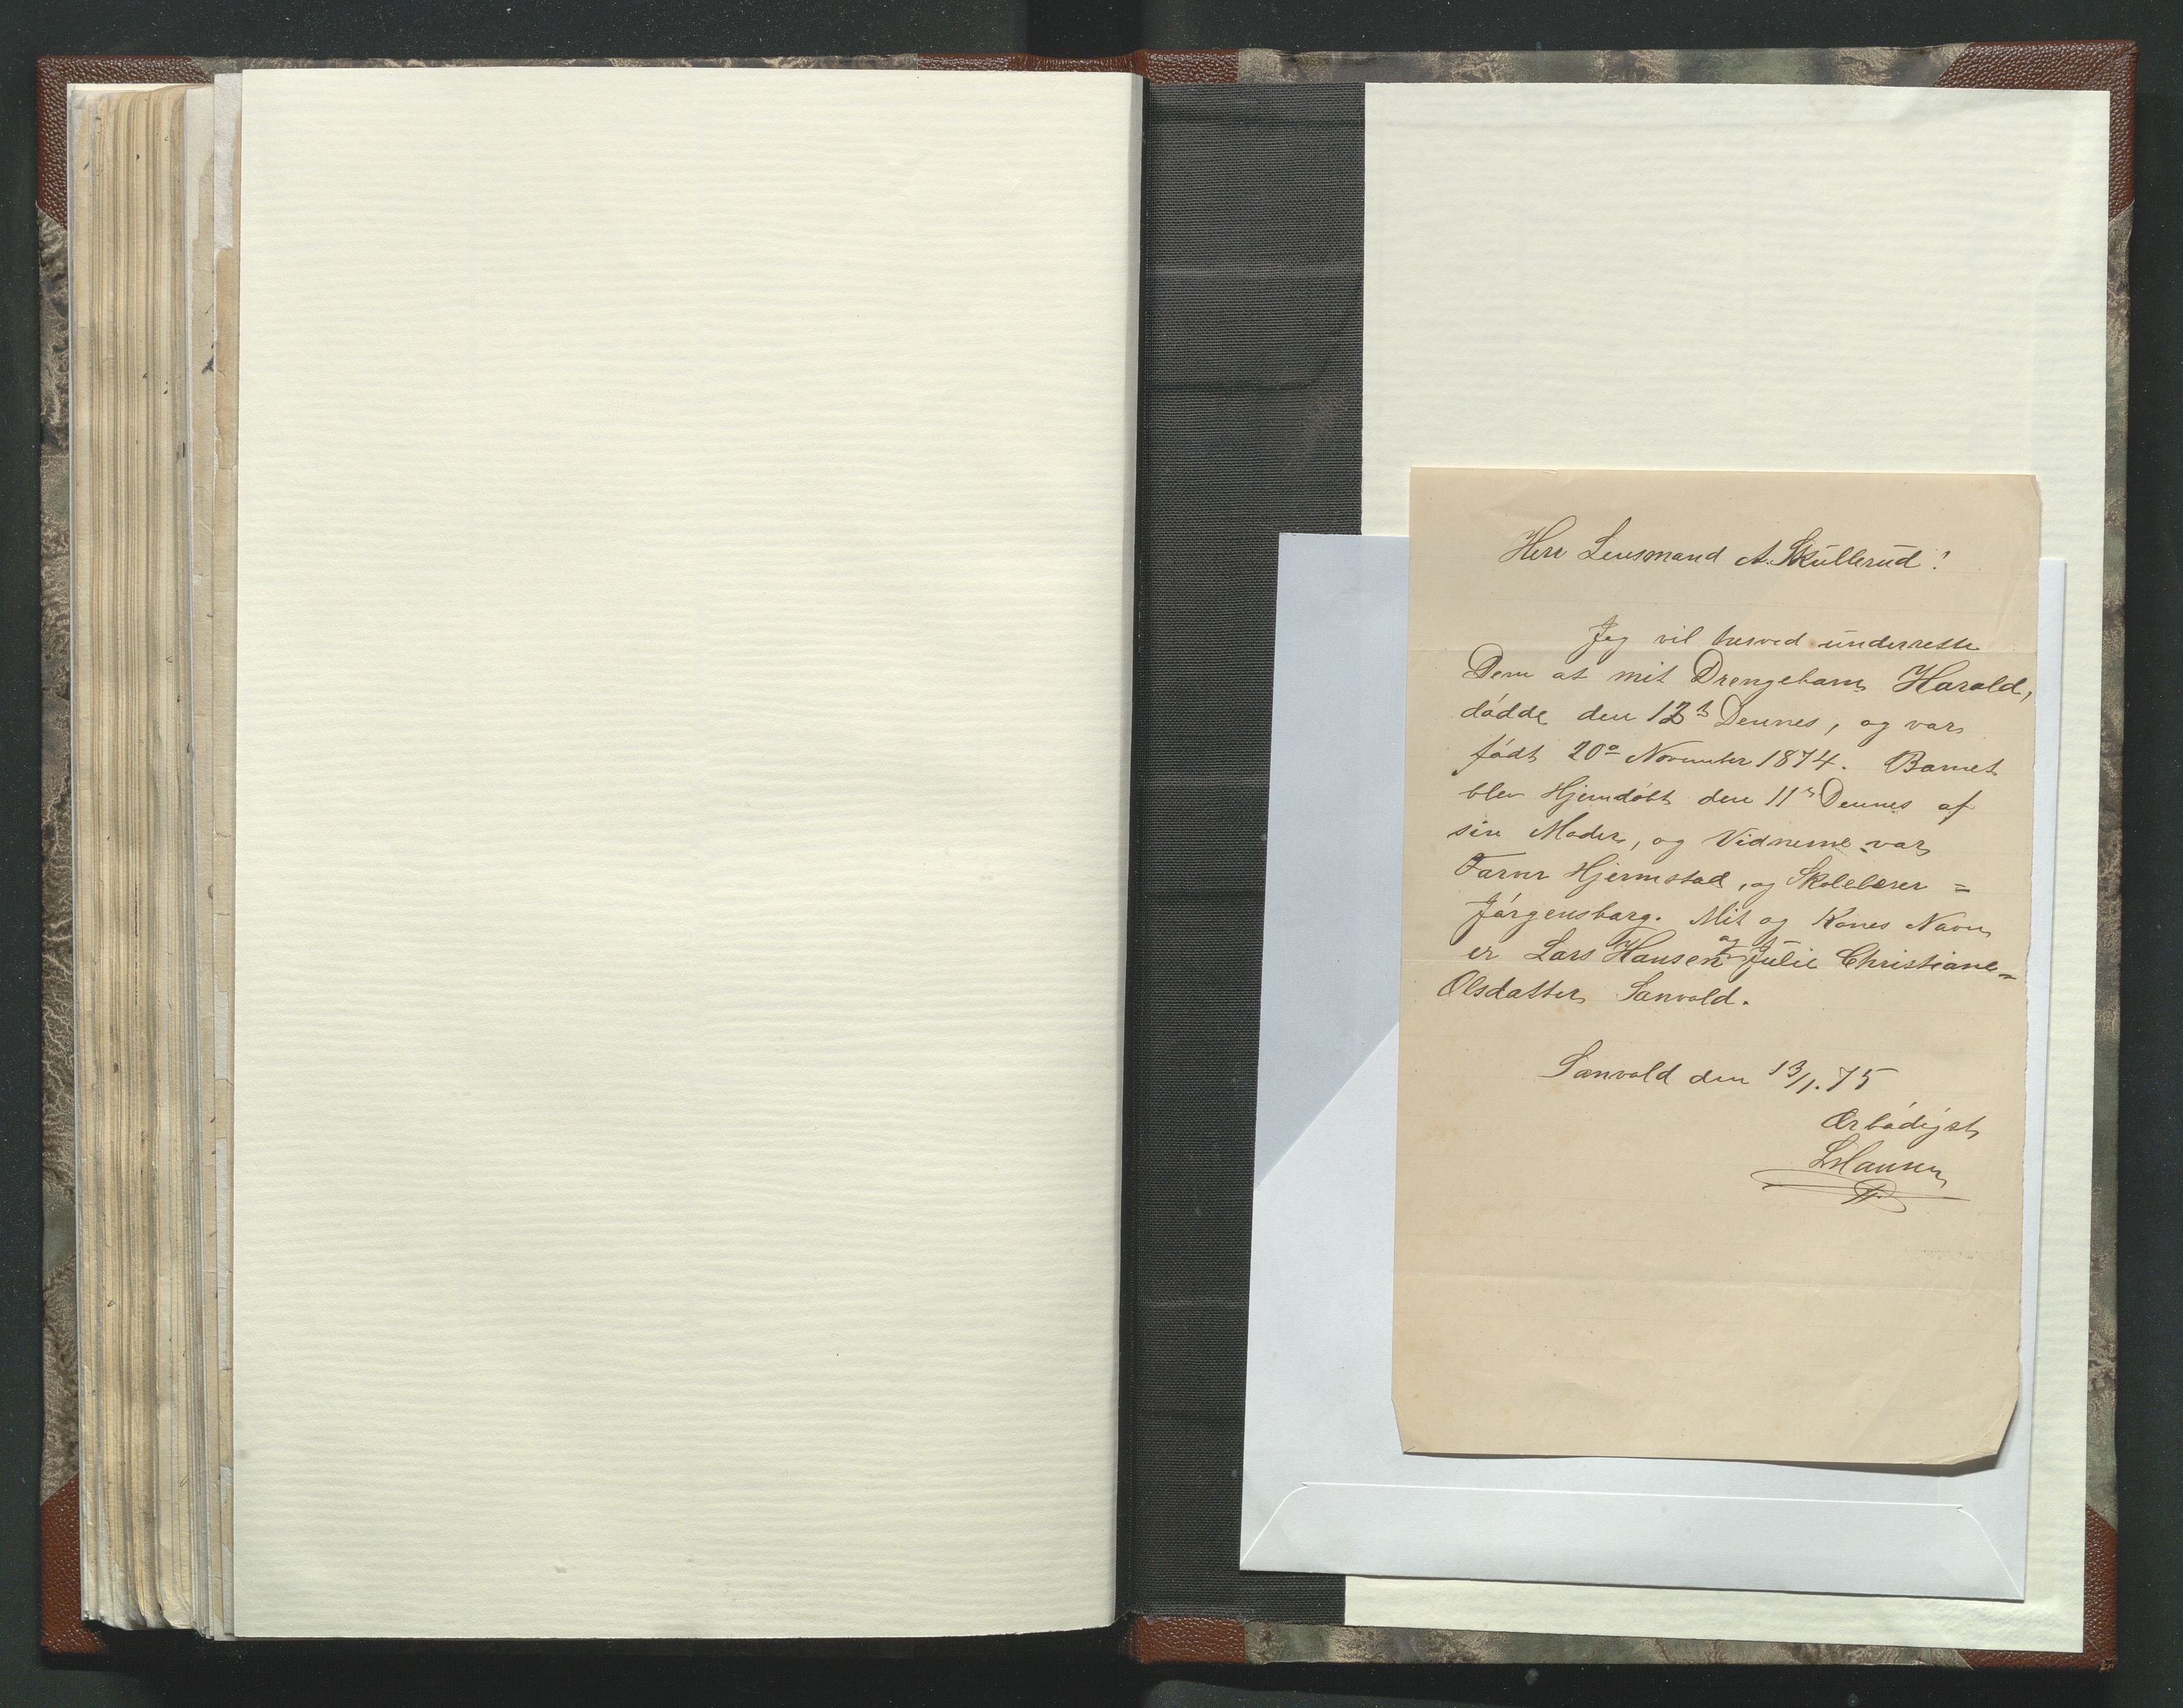 Herr Lensmand A. Skullerud!
Jeg vil herved underrette
Dem at mit Drengebarn Harald,
dødde den 12t Dennes, og var
født 20de November 1874. Barnet
blev Hjemdøbt den 11te Dennes af
sin Moder, og Vidnerne var
Farver Hjermstad, og Skolelærer =
Jørgensbarg. Mit og Kones Navn
er Lars Hansen og Julie Christiane =
Olsdatter Sanvold.
Sanvold den 13/1. 75
Ærbødigst
L. Hansen